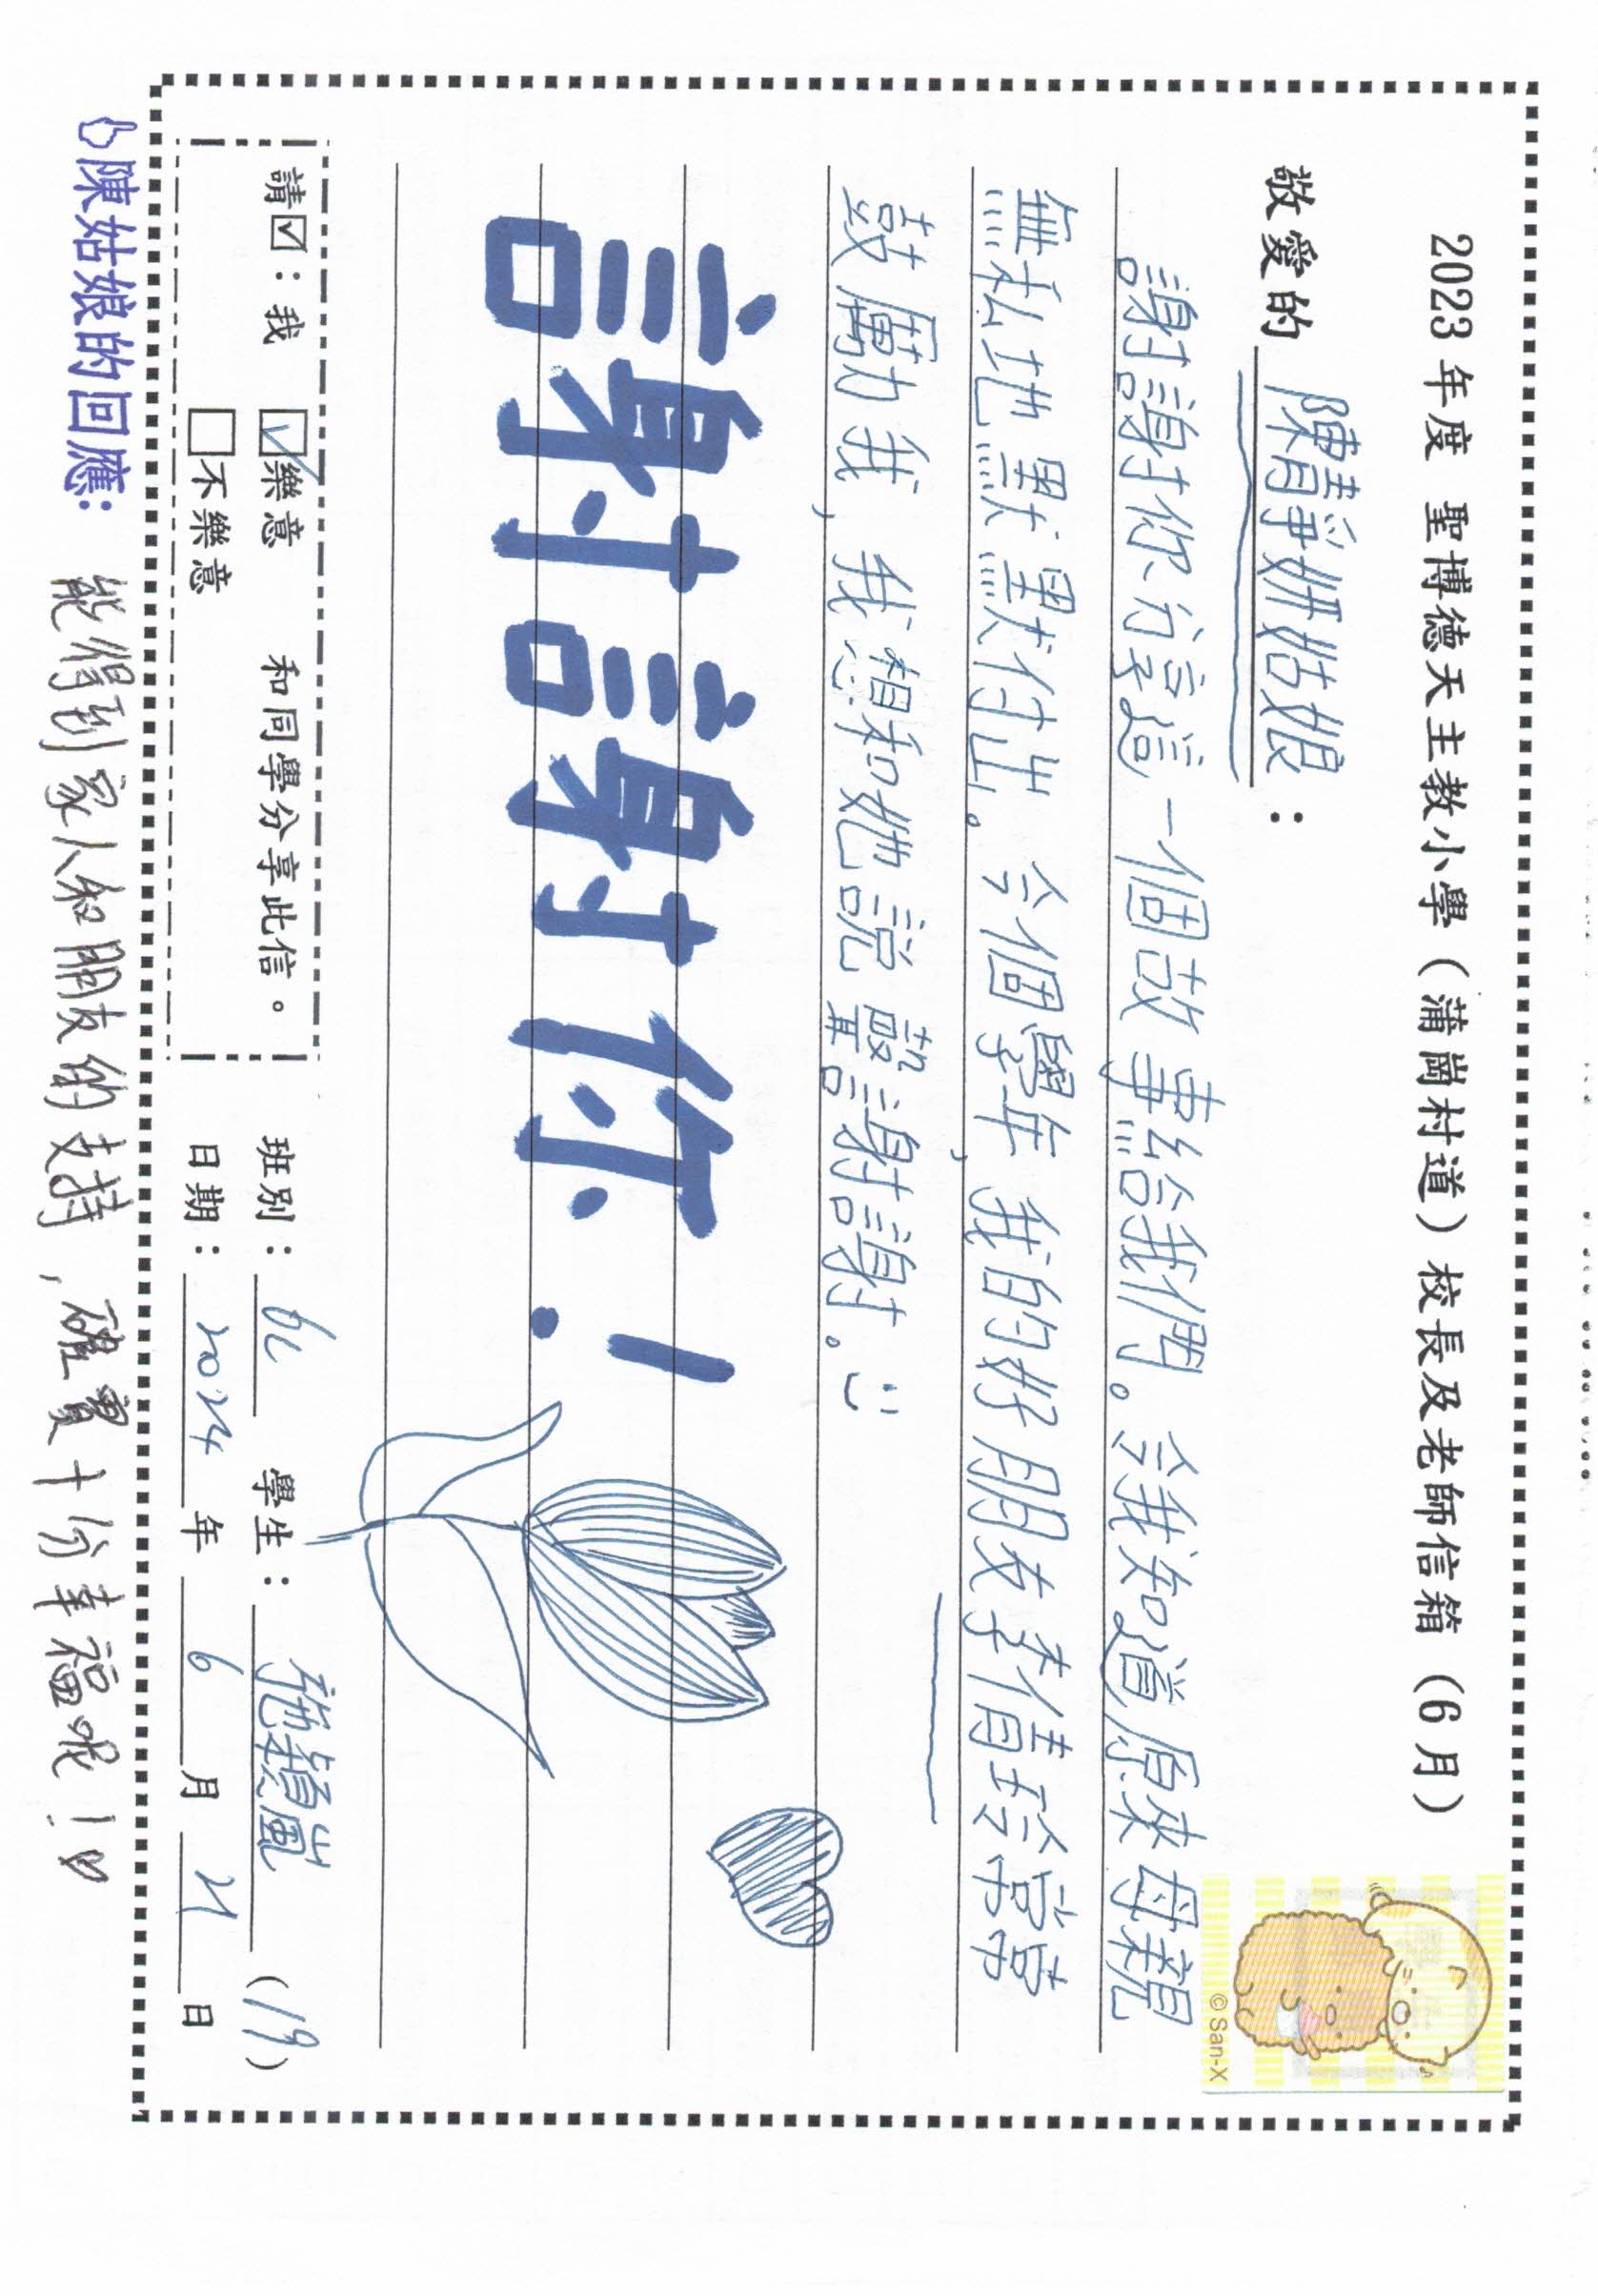 2023年度 聖博德天主教小學（蒲崗村道）校長及老師信箱（6月）
敬愛的 陳靜妍姑娘：
謝謝你分享這一個故事給我們。令我知道原來母親
無私地默默付出。今個學年，我的好朋友李倩玲常常
鼓勵我，我想和她說聲謝謝。
謝謝你！
請☑：我 ☑樂意 和同學分享此信。
□不樂意
班別：6C 學生：施穎嵐 (19)
日期：2024年6月21日
陳姑娘的回應：能得到家人和朋友的支持，確實十分幸福呢！
© San-X